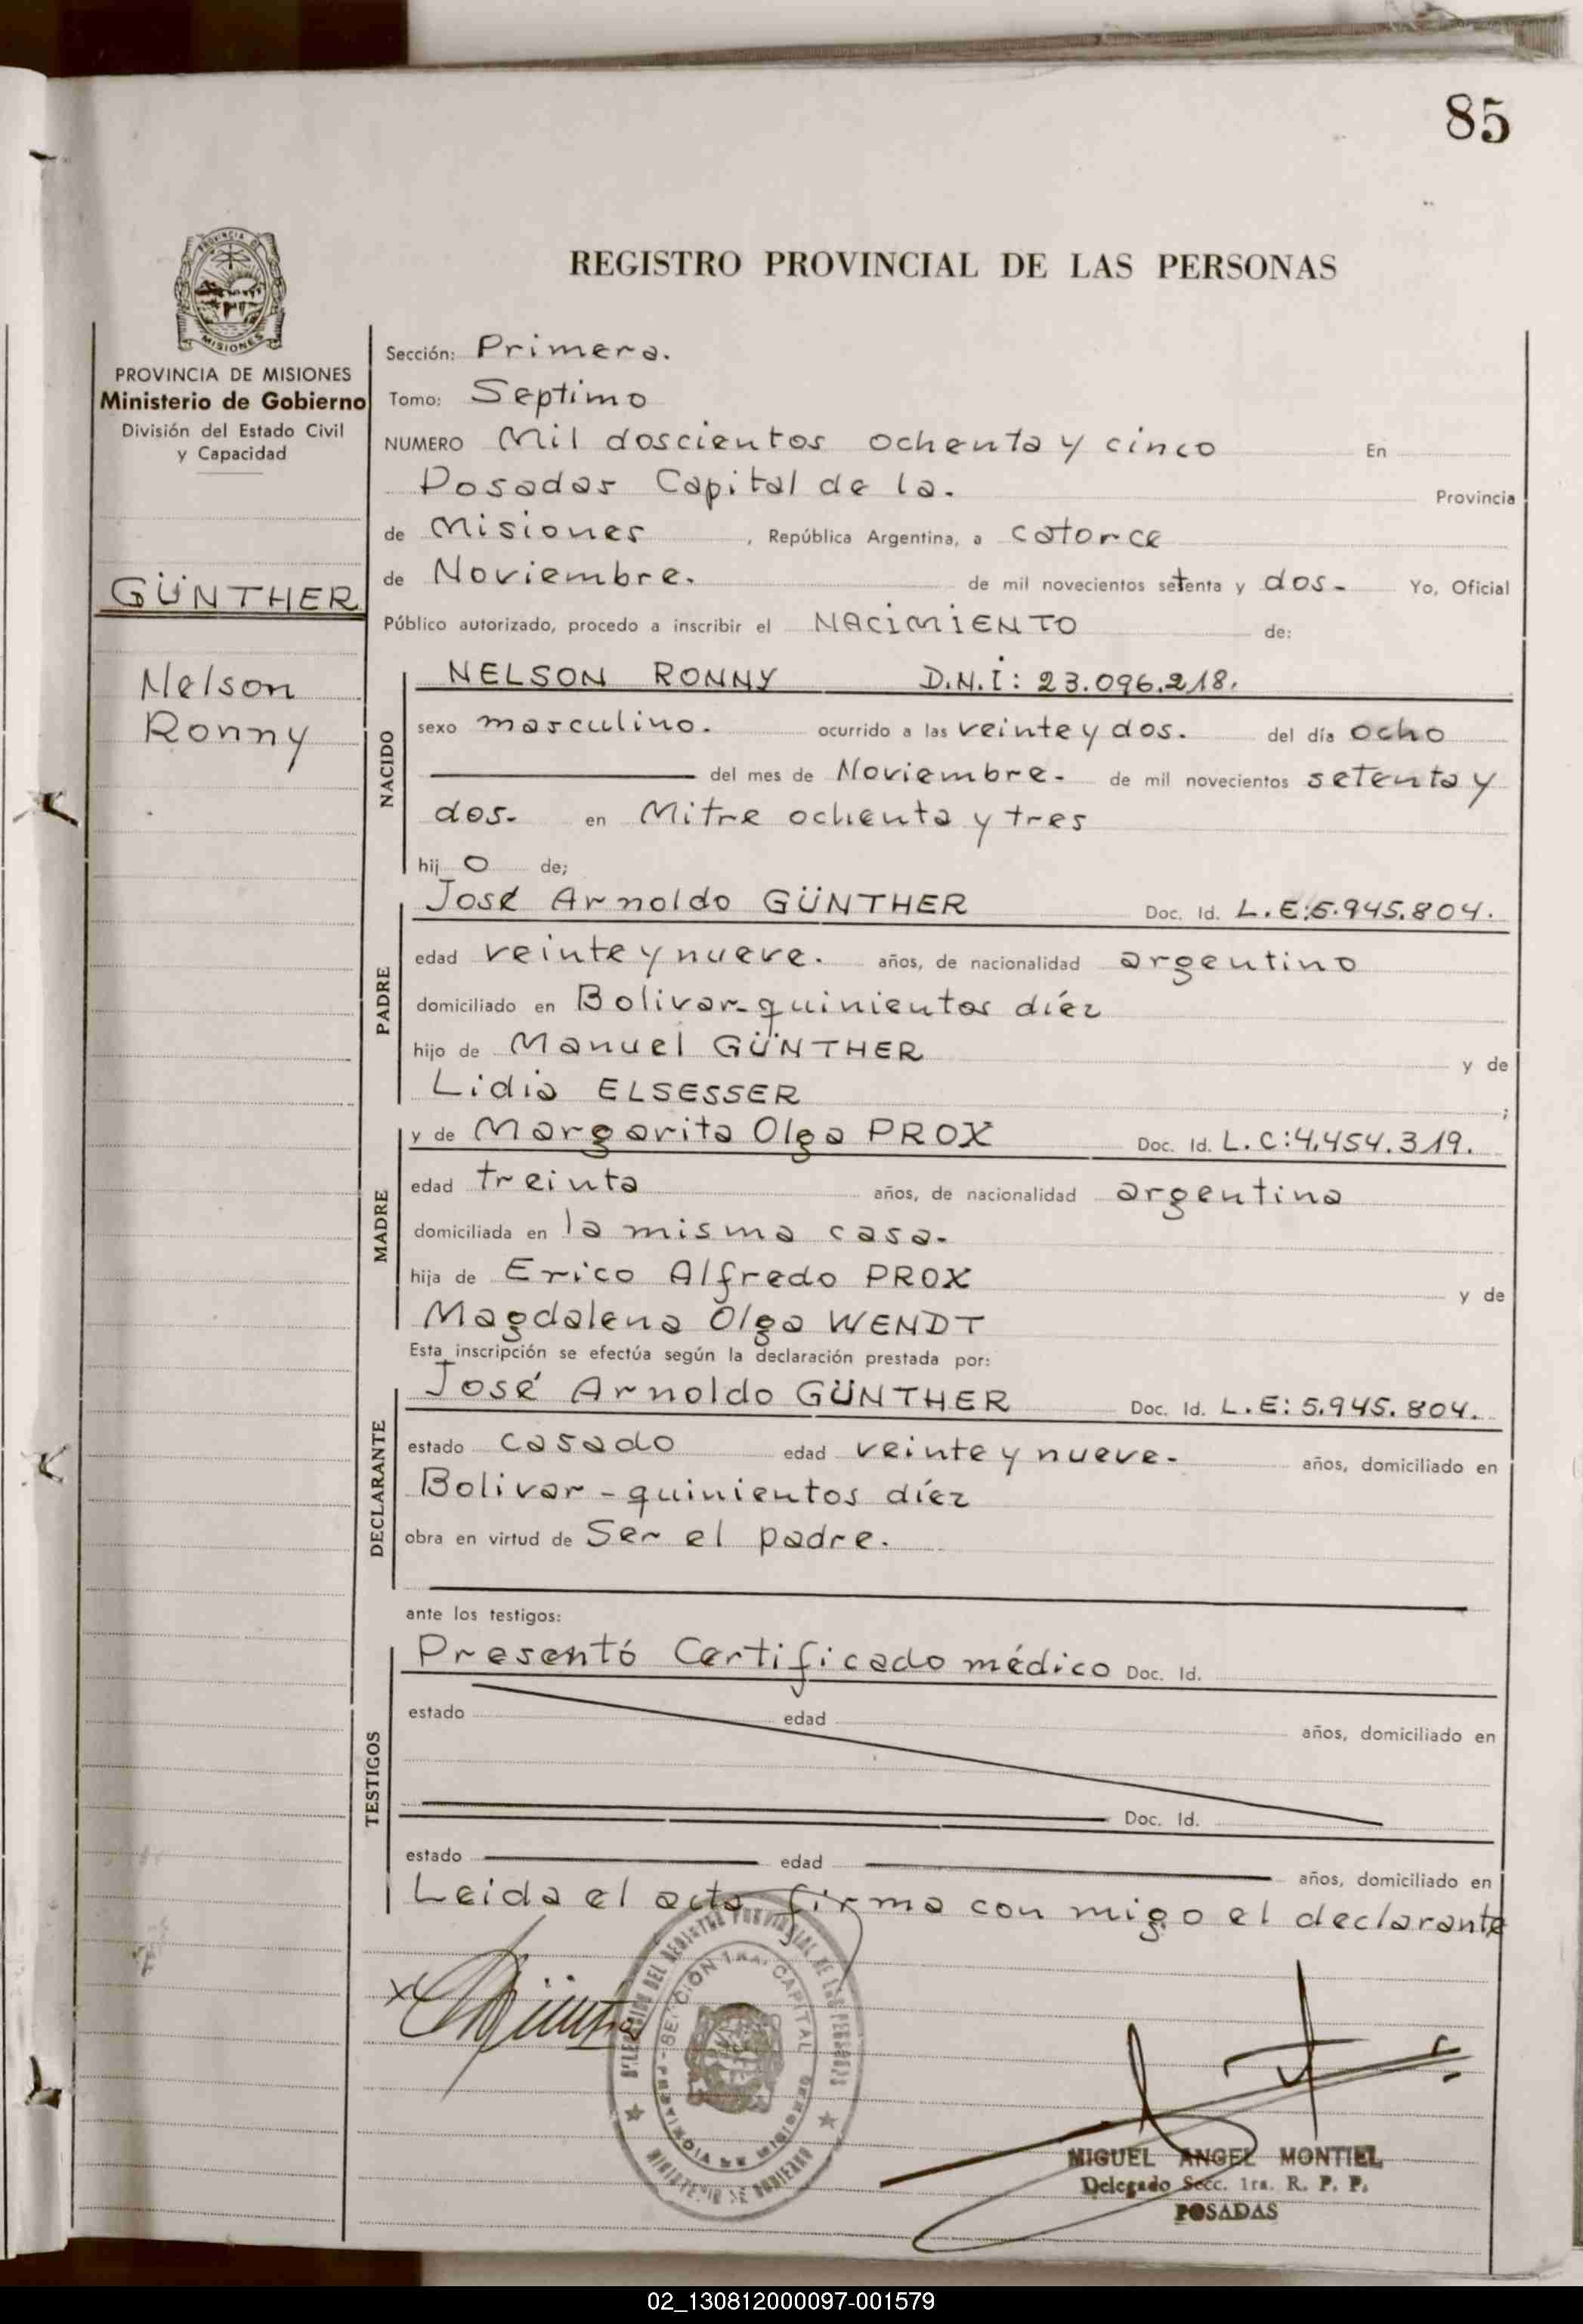 85
PROVINCIA DE
MISIONES
PROVINCIA DE MISIONES
Ministerio de Gobierno
División del Estado Civil
y Capacidad
GÜNTHER
Nelson
Ronny
REGISTRO PROVINCIAL DE LAS PERSONAS
Sección: Primera.
Tomo: Septimo
NUMERO Mil doscientos ochenta y cinco En
Posadas Capital de la. Provincia
de Misiones, República Argentina, a catorce
de Noviembre. de mil novecientos setenta y dos- Yo, Oficial
Público autorizado, procedo a inscribir el NACIMIENTO de:
NACIDO
NELSON RONNY D.N.I: 23.096.218.
sexo masculino. ocurrido a las veinte y dos. del día ocho
del mes de Noviembre- de mil novecientos setenta y
dos- en Mitre ochenta y tres
hijo de;
PADRE
José Arnoldo GÜNTHER Doc. Id. L.E:5.945.804.
edad veinte y nueve. años, de nacionalidad argentino
domiciliado en Bolivar-quinientos díez
hijo de Manuel GÜNTHER y de
Lidia ELSESSER ;
MADRE
y de Margarita Olga PROX Doc. Id. L.C:4.454.319.
edad treinta años, de nacionalidad argentina
domiciliada en la misma casa-
hija de Erico Alfredo PROX y de
Magdalena Olga WENDT
Esta inscripción se efectúa según la declaración prestada por:
DECLARANTE
José Arnoldo GÜNTHER Doc. Id. L.E: 5.945.804.
estado casado edad veinte y nueve- años, domiciliado en
Bolivar - quinientos díez
obra en virtud de Ser el padre.
ante los testigos:
TESTIGOS
Presentó Certificado médico Doc. Id.
estado edad años, domiciliado en
Doc. Id.
estado edad años, domiciliado en
Leida el acta firma con migo el declarante
DIRECCION DEL REGISTRO PROVINCIAL DE LAS PERSONAS
SECCION 1RA. CAPITAL
PROVINCIA DE MISIONES
MINISTERIO DE GOBIERNO
MIGUEL ANGEL MONTIEL
Delegado Secc. 1ra. R. P. P.
POSADAS
02_130812000097-001579